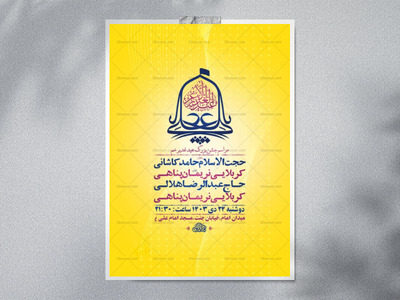 مراسم جشن بزرگ عید غدیر خم
حجت الاسلام حامد کاشانی
کربلایی نریمان پناهی
حاج عبدالرضا هلالی
کربلایی نریمان پناهی
دوشنبه ۲۴ دی ۱۴۰۳ ساعت: ۲۱:۳۰
میدان امام، خیابان جنت، مسجد امام علی ع